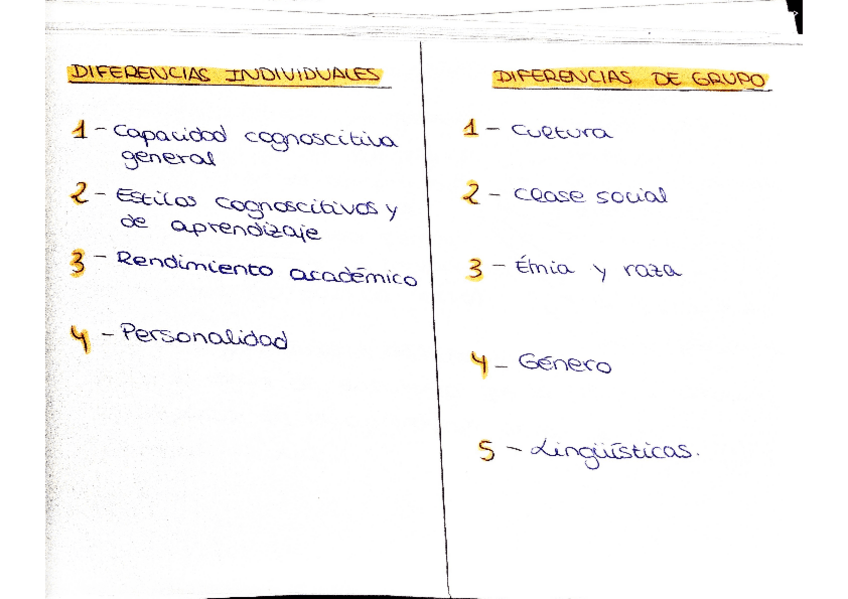 DIFERENCIAS INDIVIDUALES
1 - Capacidad cognoscitiva
general
2 - Estilos cognoscitivos y
de aprendizaje
3 - Rendimiento académico
4 - Personalidad
DIFERENCIAS DE GRUPO
1 - Cultura
2 - Clase social
3 - Étnia y raza
4 - Género
5 - Lingüísticas.